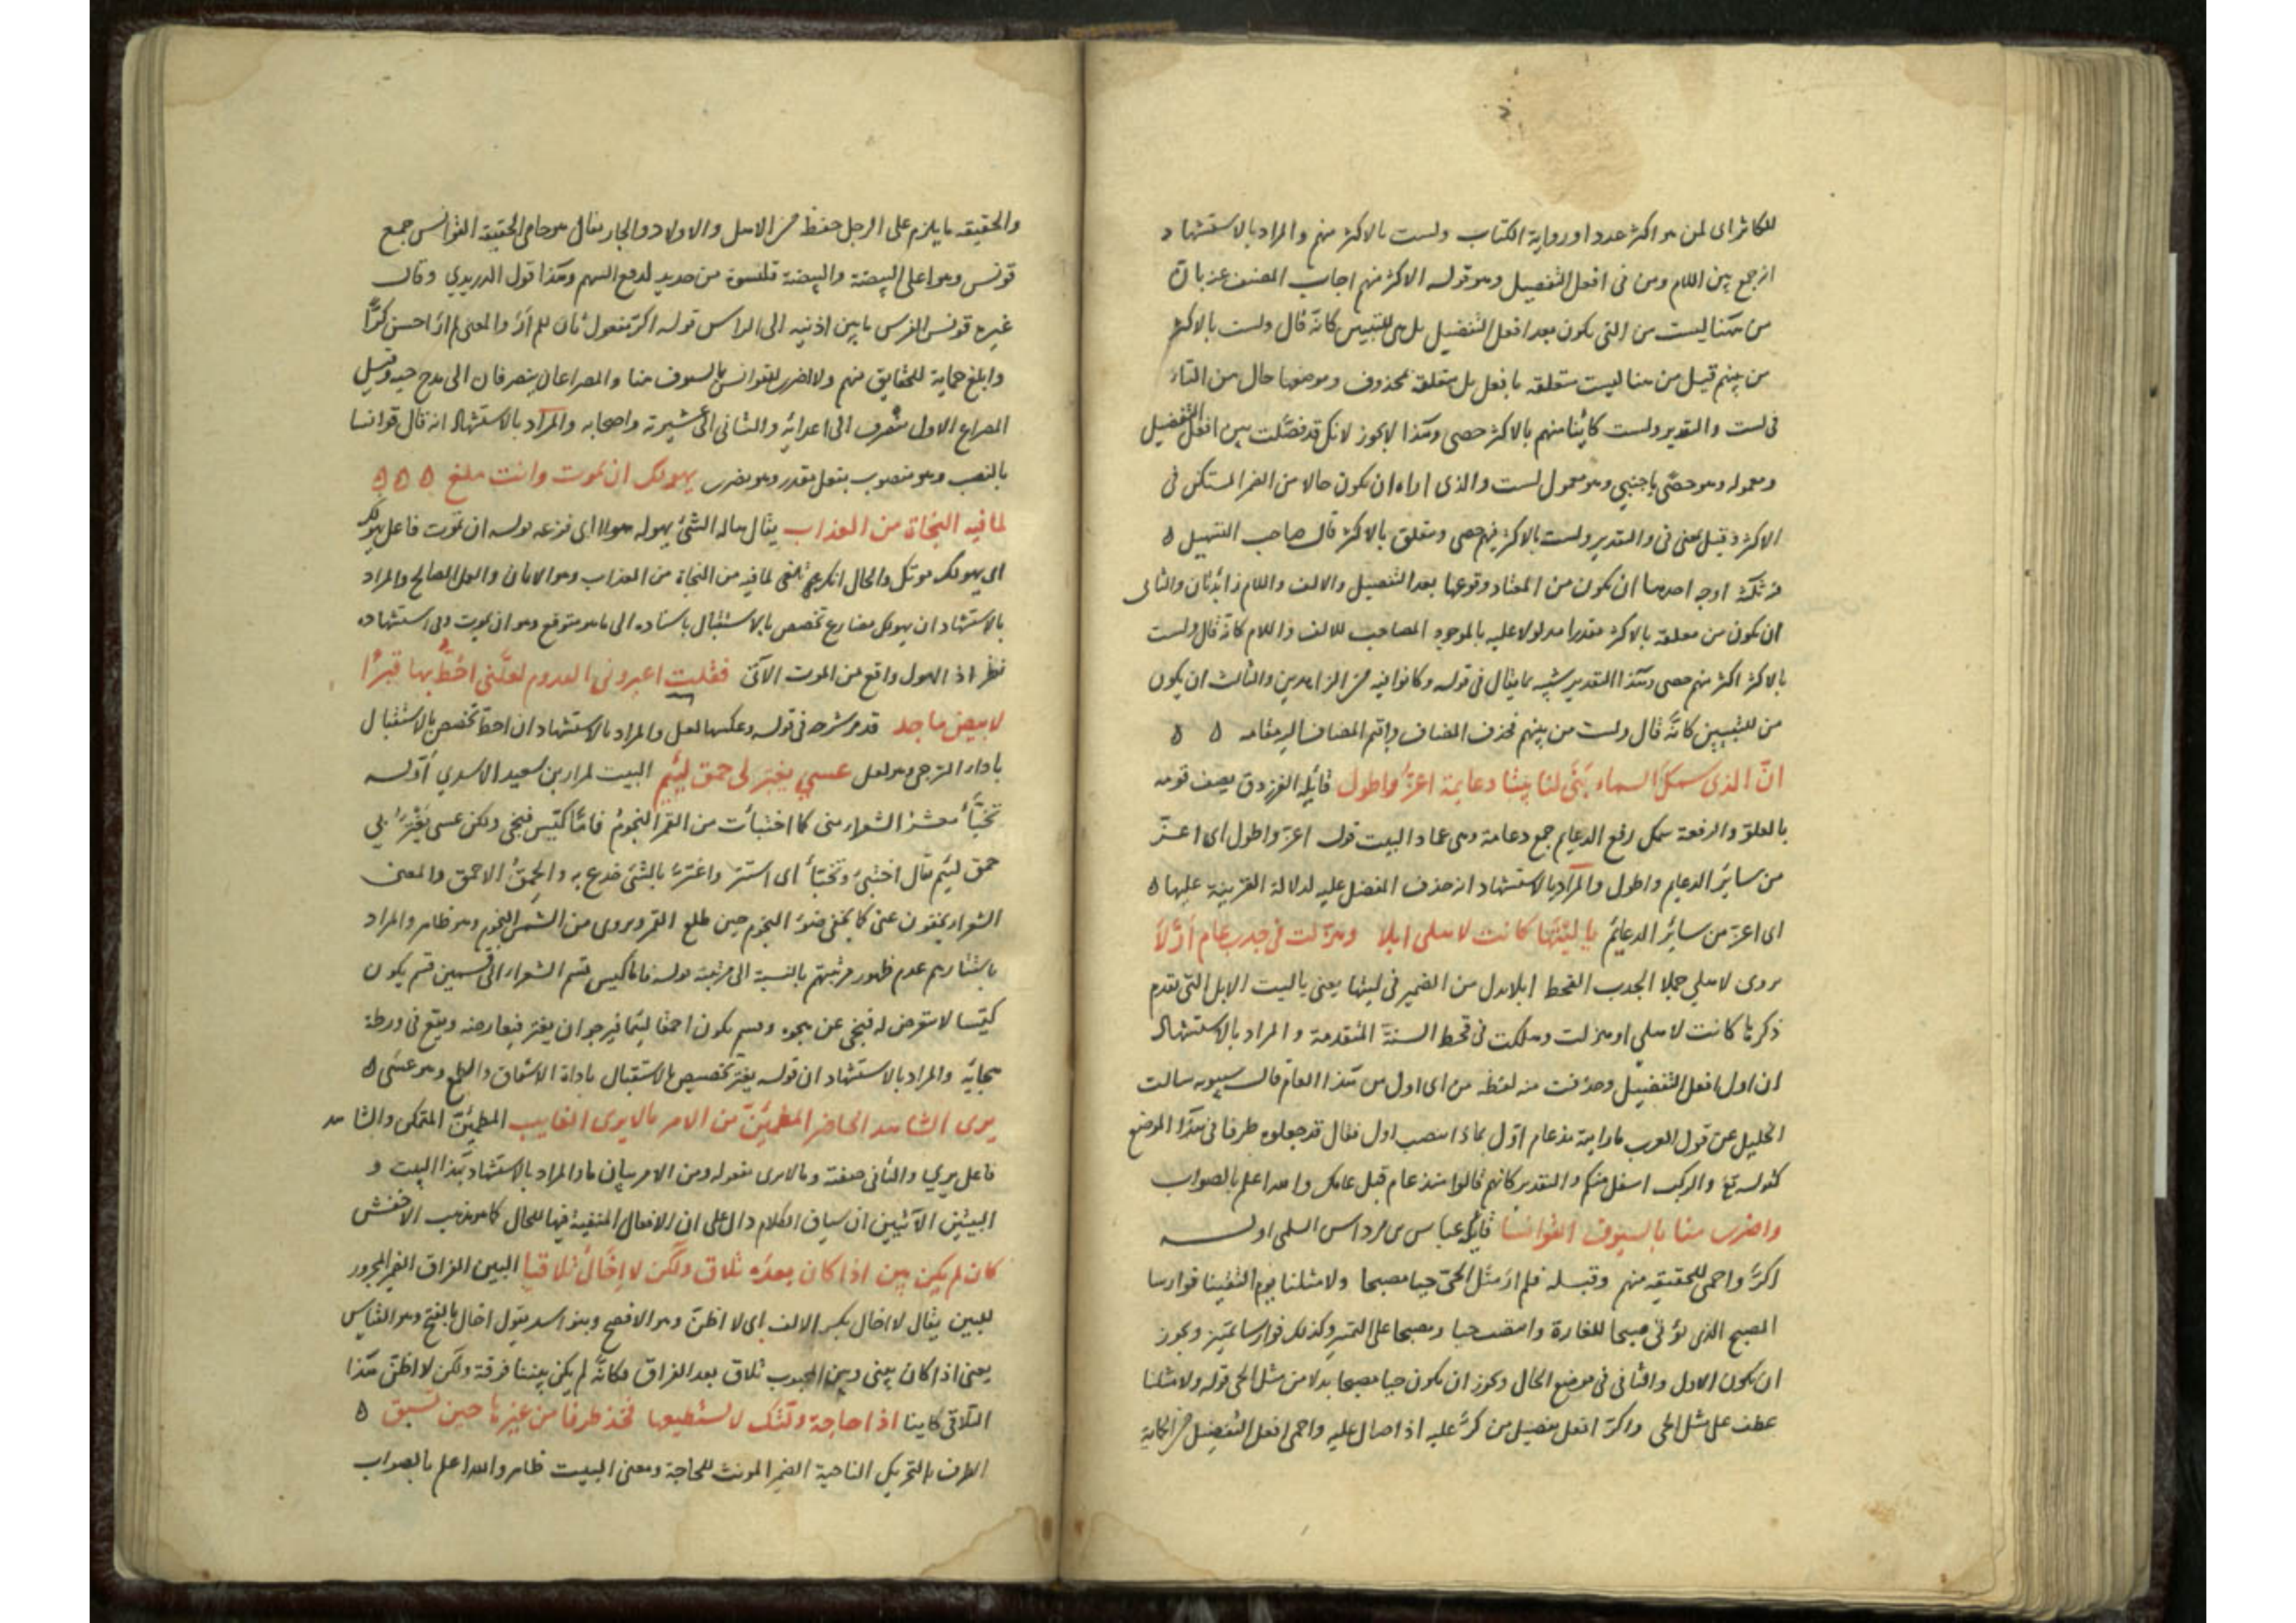 للكاثر اى لمن هو اكثر عددا ورواية الكتاب ولست بالاكثر منهم والمراد بالاستشهاد
انه جمع بين اللام ومن فى افعل التفضيل وهو قوله الاكثر منهم اجاب المصنف عنه بان
من هنا ليست من التى يكون بعد افعل التفضيل بل هى للتبيين كانه قال ولست بالاكثر
من بينهم قيل من هنا ليست متعلقه بافعل بل متعلقه بمحذوف وموضعها حال من التاء
فى لست والتقدير ولست كائنا منهم بالاكثر حصى وهذا لايجوز لانك قد فصلت بين افعل التفضيل
ومعموله وهو حصى باجنبي وهو معمول لست والذى اراه ان يكون حالا من الضمير المستكن فى
الاكثر وقيل بمعنى فى والتقدير ولست بالاكثر فيهم حصى ومتعلق بالاكثر قال صاحب التسهيل ٥
اوجه احدها ان يكون من المعتاد وقوعها بعد التفضيل والالف واللام زائدتان والثانى
ان يكون من معلقه بالاكثر مقدرا مدلولا عليه بالموجود المصاحب للالف واللام كانه قال ولست
بالاكثر اكثر منهم حصى وهذا التقدير شبيه بما يقال فى قوله وكانوا فيه من الزاهدين والثالث ان يكون
من للتبيين كانه قال ولست من بينهم فحذف المضاف واقيم المضاف اليه مقامه ٥ ٥
انّ الذى سمك السماء بَنَى لنا بيتا دعايمة اعزّ واطول قائله الفرزدق يصف قومه
بالعلو والرفعة سمك رفع الدعايم جمع دعامة وهى عماد البيت قوله اعز واطول اى اعز
من سائر الدعايم واطول والمراد بالاستشهاد انه حذف المفضل عليه لدلالة القرينة عليها ٥
اى اعز من سائر الدعائم يا ليتها كانت لاهلى ابلا وهزلت فى جدب عام اوّلا
يروى لاهلي جملا الجدب القحط ابلا بدل من الضمير فى ليتها يعنى ياليت الابل التى تقدم
ذكرها كانت لاهلي او هزلت وهلكت فى قحط السنة المتقدمة والمراد بالاستشهاد
ان اول افعل التفضيل وحذفت منه لفظه من اى اول من هذا العام قال سيبويه سالت
الخليل عن قول العرب مارايته مذ عام اوّل بماذا انتصب اول فقال قد جعلوه ظرفا فى هذا الموضع
كقوله تع والركب اسفل منكم والتقدير كانهم قالوا منذ عام قبل عامك والله اعلم بالصواب
واضرب منا بالسيوف القوانسا قائله عباس بن مرداس السلمى اوله
اكرّ واحمى للحقيقه منهم وقبله فلم ار مثل الحى حيا مصبحا ولا مثلنا يوم التقينا فوارسا
المصبح الذى يؤتى صبحا للغارة وانتصب حيا ومصبحا على التميز وكذلك فوارسا تميز ويجوز
ان يكون الاول والثانى فى موضع الحال ويجوز ان يكون حيا مصبحا بدلا من مثل الحى قوله ولا مثلنا
عطف على مثل الحى واكر افعل تفضيل من كرّ عليه اذا صال عليه واحمى افعل التفضيل من الحماية
والحقيقه ما يلزم على الرجل حفظه من الاهل والاولاد والجار يقال هو حامى الحقيقه القوانس جمع
قونس وهو اعلى البيضة والبيضة قلنسوة من حديد لدفع السهم وهذا قول الدريدي وقال
غيره قونس الفرس ما بين اذنيه الى الراس قوله اكر مفعول ثان للم ار والمعنى لم ار احسن كرًّا
وابلغ حماية للحقايق منهم ولا اضرب للقوانس بالسيوف منا والمصراعان ينصرفان الى مدح حيه وقيل
المصراع الاول منصرف الى اعدائه والثانى الى عشيرته واصحابه والمراد بالاستشهاد انه قال قوانسا
بالنصب وهو منصوب بفعل مقدر وهو يضرب يهولك ان تموت وانت ملغ ٥ ٥ ٥
لما فيه النجاة من العذاب يقال هاله الشئ يهوله هولا اى فزعه قوله ان تموت فاعل يهولك
اى يهولك موتك والحال انك ملغى لما فيه من النجاة من العذاب وهو الايمان والعمل الصالح والمراد
بالاستشهاد ان يهولك مضارع تخصص بالاستقبال باسناده الى ما هو متوقع وهو ان يموت وفى استشهاده
نظر اذ الهول واقع من الموت الآتى فقلت اعيرونى القدوم لعلّنى اخطّ بها قبرًا
لابيض ماجد قد مر شرحه فى قوله وعكسها لعل والمراد بالاستشهاد ان اخط تخصص بالاستقبال
باداة الترجى وهو لعل عسي يغتر لى حمق لئيم البيت لمرار بن سعيد الاسدي اوله
تخبّأ معشر الشعراء منى كما اختبأت من القمر النجوم فامّا كيّس فنجى ولكن عسى يغترّ بى
حمق لئيم يقال اختبى وتخبأ اى استتر واغتر بالشئ خدع به والحمق الاحمق والمعنى
الشعراء يخفون عنى كما يخفى ضوء النجوم حين طلع القمر ويروى من الشمس النجوم وهو ظاهر والمراد
باستتارهم عدم ظهور مرتبتهم بالنسبة الى مرتبته قوله فاما كيس قسم الشعراء الى قسمين قسم يكون
كيّسا لا يتعرض له فنجى عن هجوه وقسم يكون احمقا لئيما فيرجو ان يغتر فيعارضه ويقع فى ورطة
هجائه والمراد بالاستشهاد ان قوله يغتر تخصيص بالاستقبال باداة الاشفاق والطمع وهو عسى ٥
يرى الشاهد الحاضر المطمئنّ من الامر مالا يرى الغايب المطمئنّ المتمكن والشاهد
فاعل يرى والثانى صفته وما لا يرى مفعوله ومن الامر بيان ما والمراد بالاستشهاد بهذا البيت و
البيتين الآتيين ان سياق الكلام دال على ان الافعال المنفية فيها للحال كما هو مذهب الاخفش
كان لم يكن بين اذا كان بعده تلاق ولكن لا اخال تلاقيا البين الفراق الضمير المجرور
للبين يقال لا اخال بكسر الالف اى لا اظن وهو الافصح وبنو اسد يقول اخال بالفتح وهو القياس
يعنى اذا كان بينى وبين المحبوب تلاق بعد الفراق فكانّه لم يكن بيننا فرقة ولكن لا اظن هذا
التلاقى كاينا اذا حاجة ولّتك لا تستطيعها فخذ طرفا من غيرها حين تسبق ٥
الطرف بالتحريك الناحية الضمير المونث للحاجة ومعنى البيت ظاهر والله اعلم بالصواب